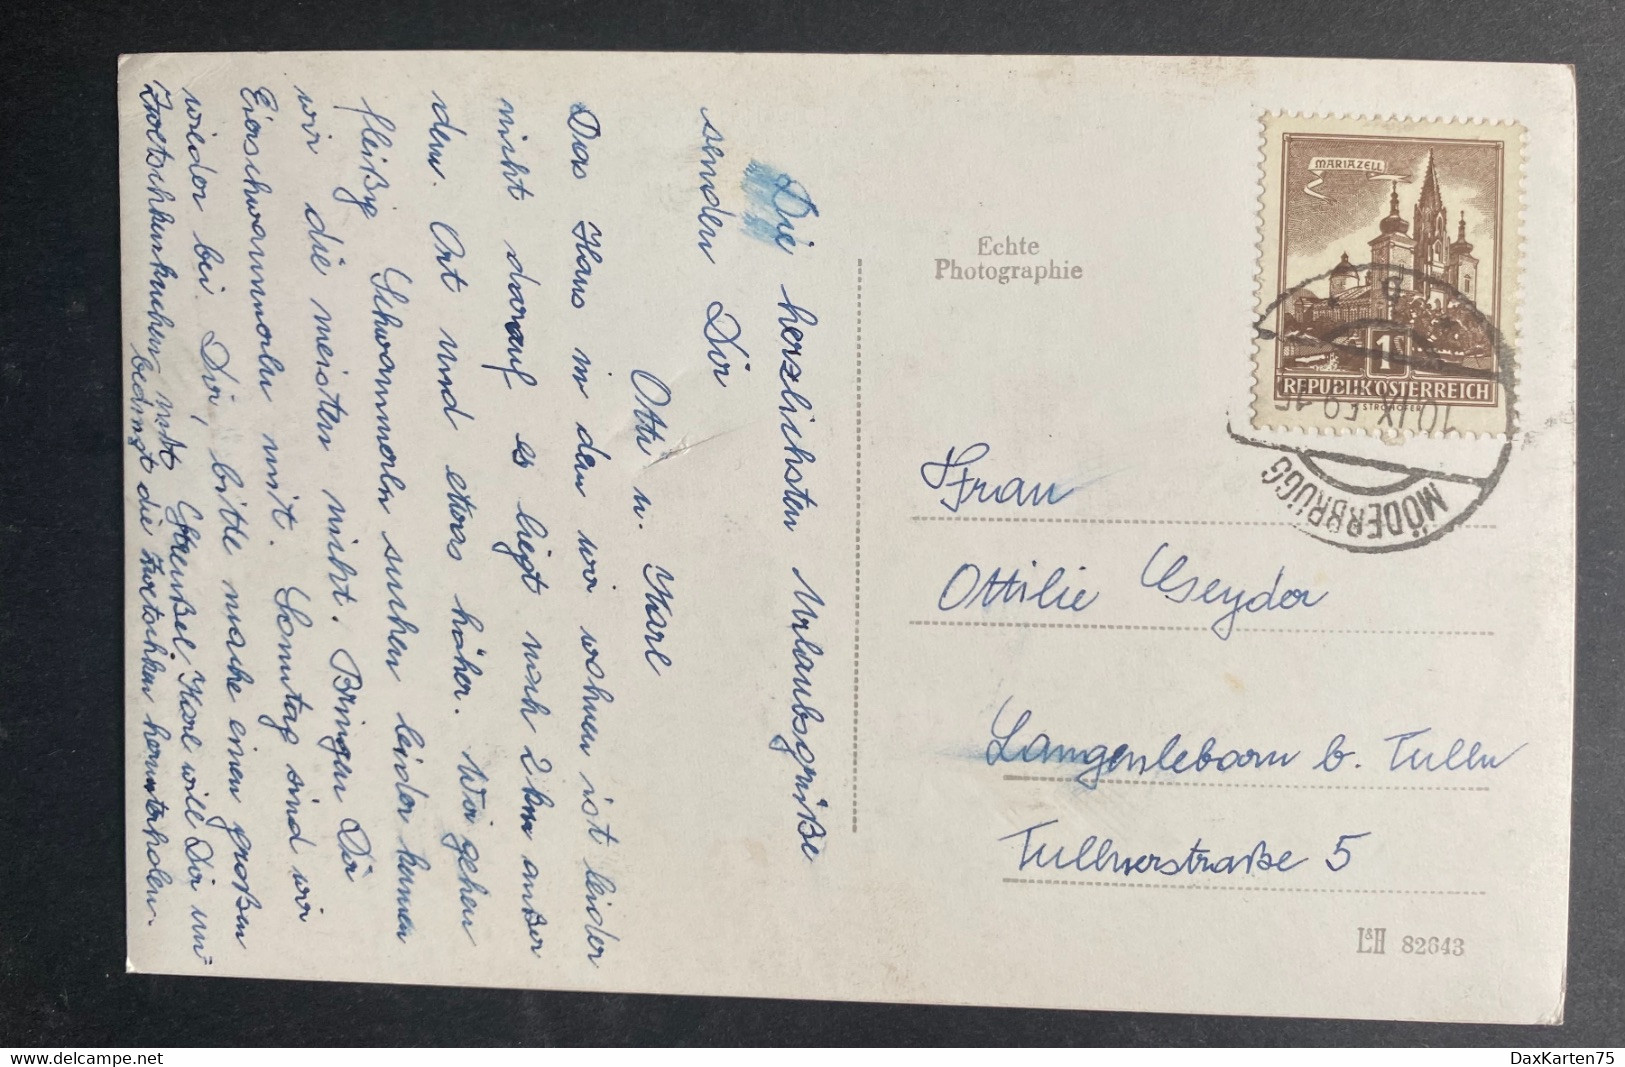 Die herzlichsten Urlaubsgrüße
senden Dir
Otti u. Karl
Das Haus in dem wir wohnen ist leider
nicht darauf es liegt noch 2 km außer
dem Ort und etwas höher. Wir gehen
fleißig Schwammerln suchen leider kennen
wir die meisten nicht. Bringen Dir
Eierschwammerln mit. Sonntag sind wir
wieder bei Dir, bitte mache einen großen
Zwetschkenkuchen mit Streußel Karl will Dir un=
bedingt die Zwetschken herunterholen.
Echte
Photographie
MARIAZELL
1S
REPUBLIK ÖSTERREICH
STROHOFER
10.IX.59 15
MÖDERBRUGG
Frau
Ottilie
Langenlebarn b. Tulln
Tullnerstraße 5
L&H 82643
DaxKarten75
www.delcampe.net